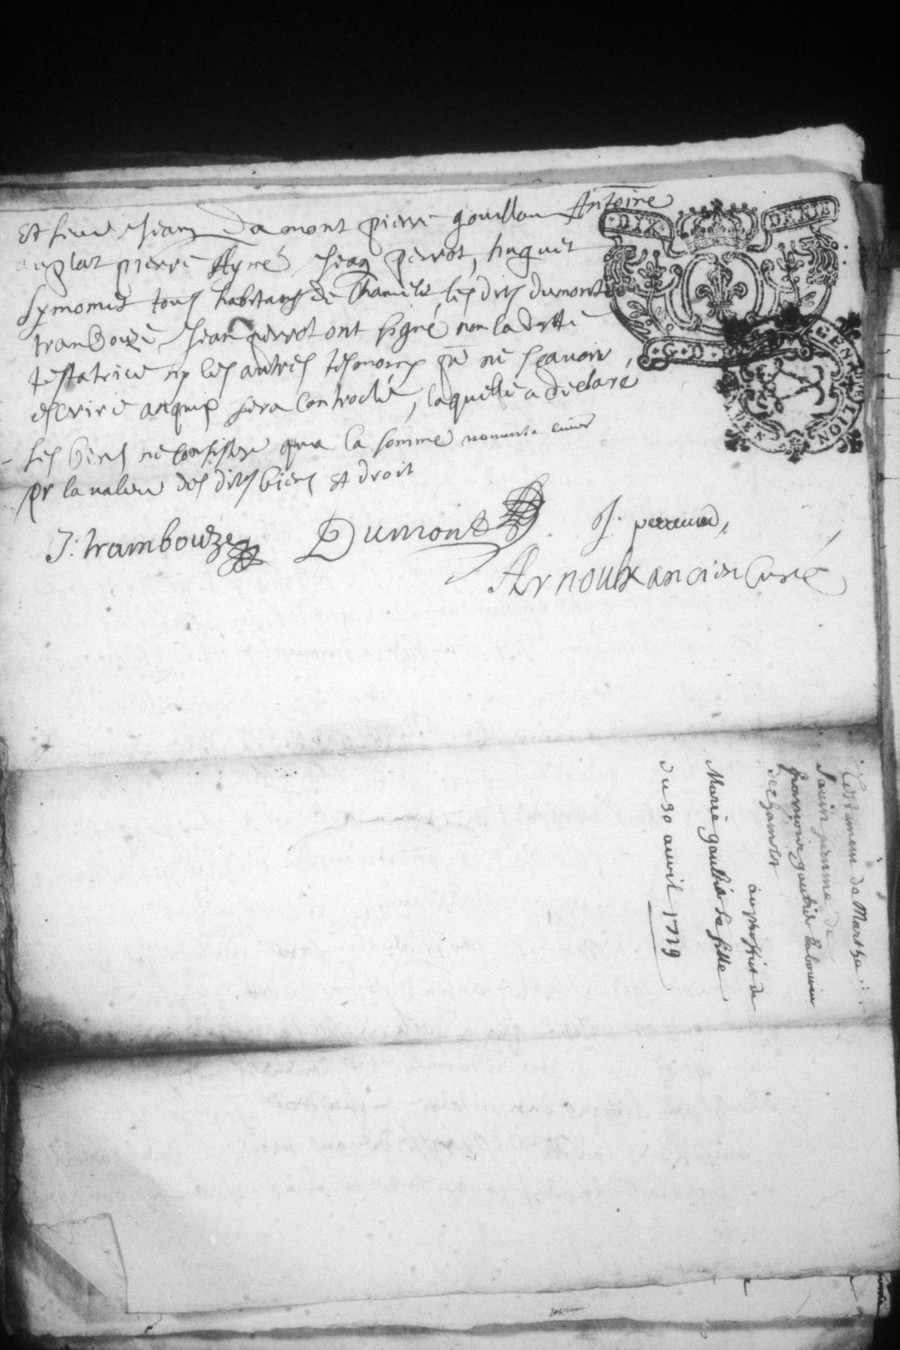 Et sieur Jean Dumont pierre gouillon Antoine
auplat pierre Aymé Jean perrot, huguet
Symonnet tous habitans de les dits dumont
trambouze Jean perrot ont signé non la ditte
testatrice ny les autres tesmoins pr ne scavoir
escrire acquis sera controllé, laquelle a declaré
ses biens ne consister qu'a la somme
pr la valeur des dits biens et droit
J: trambouze Dumont J. perreaud
Arnoulx ancien Curé
DIX DENIE
G. D.
GEN
LION
Testament de Martha
Janin femme de
gautier laboureur
de
au proffit de
Marie gautier sa fille
du 30 avril 1729